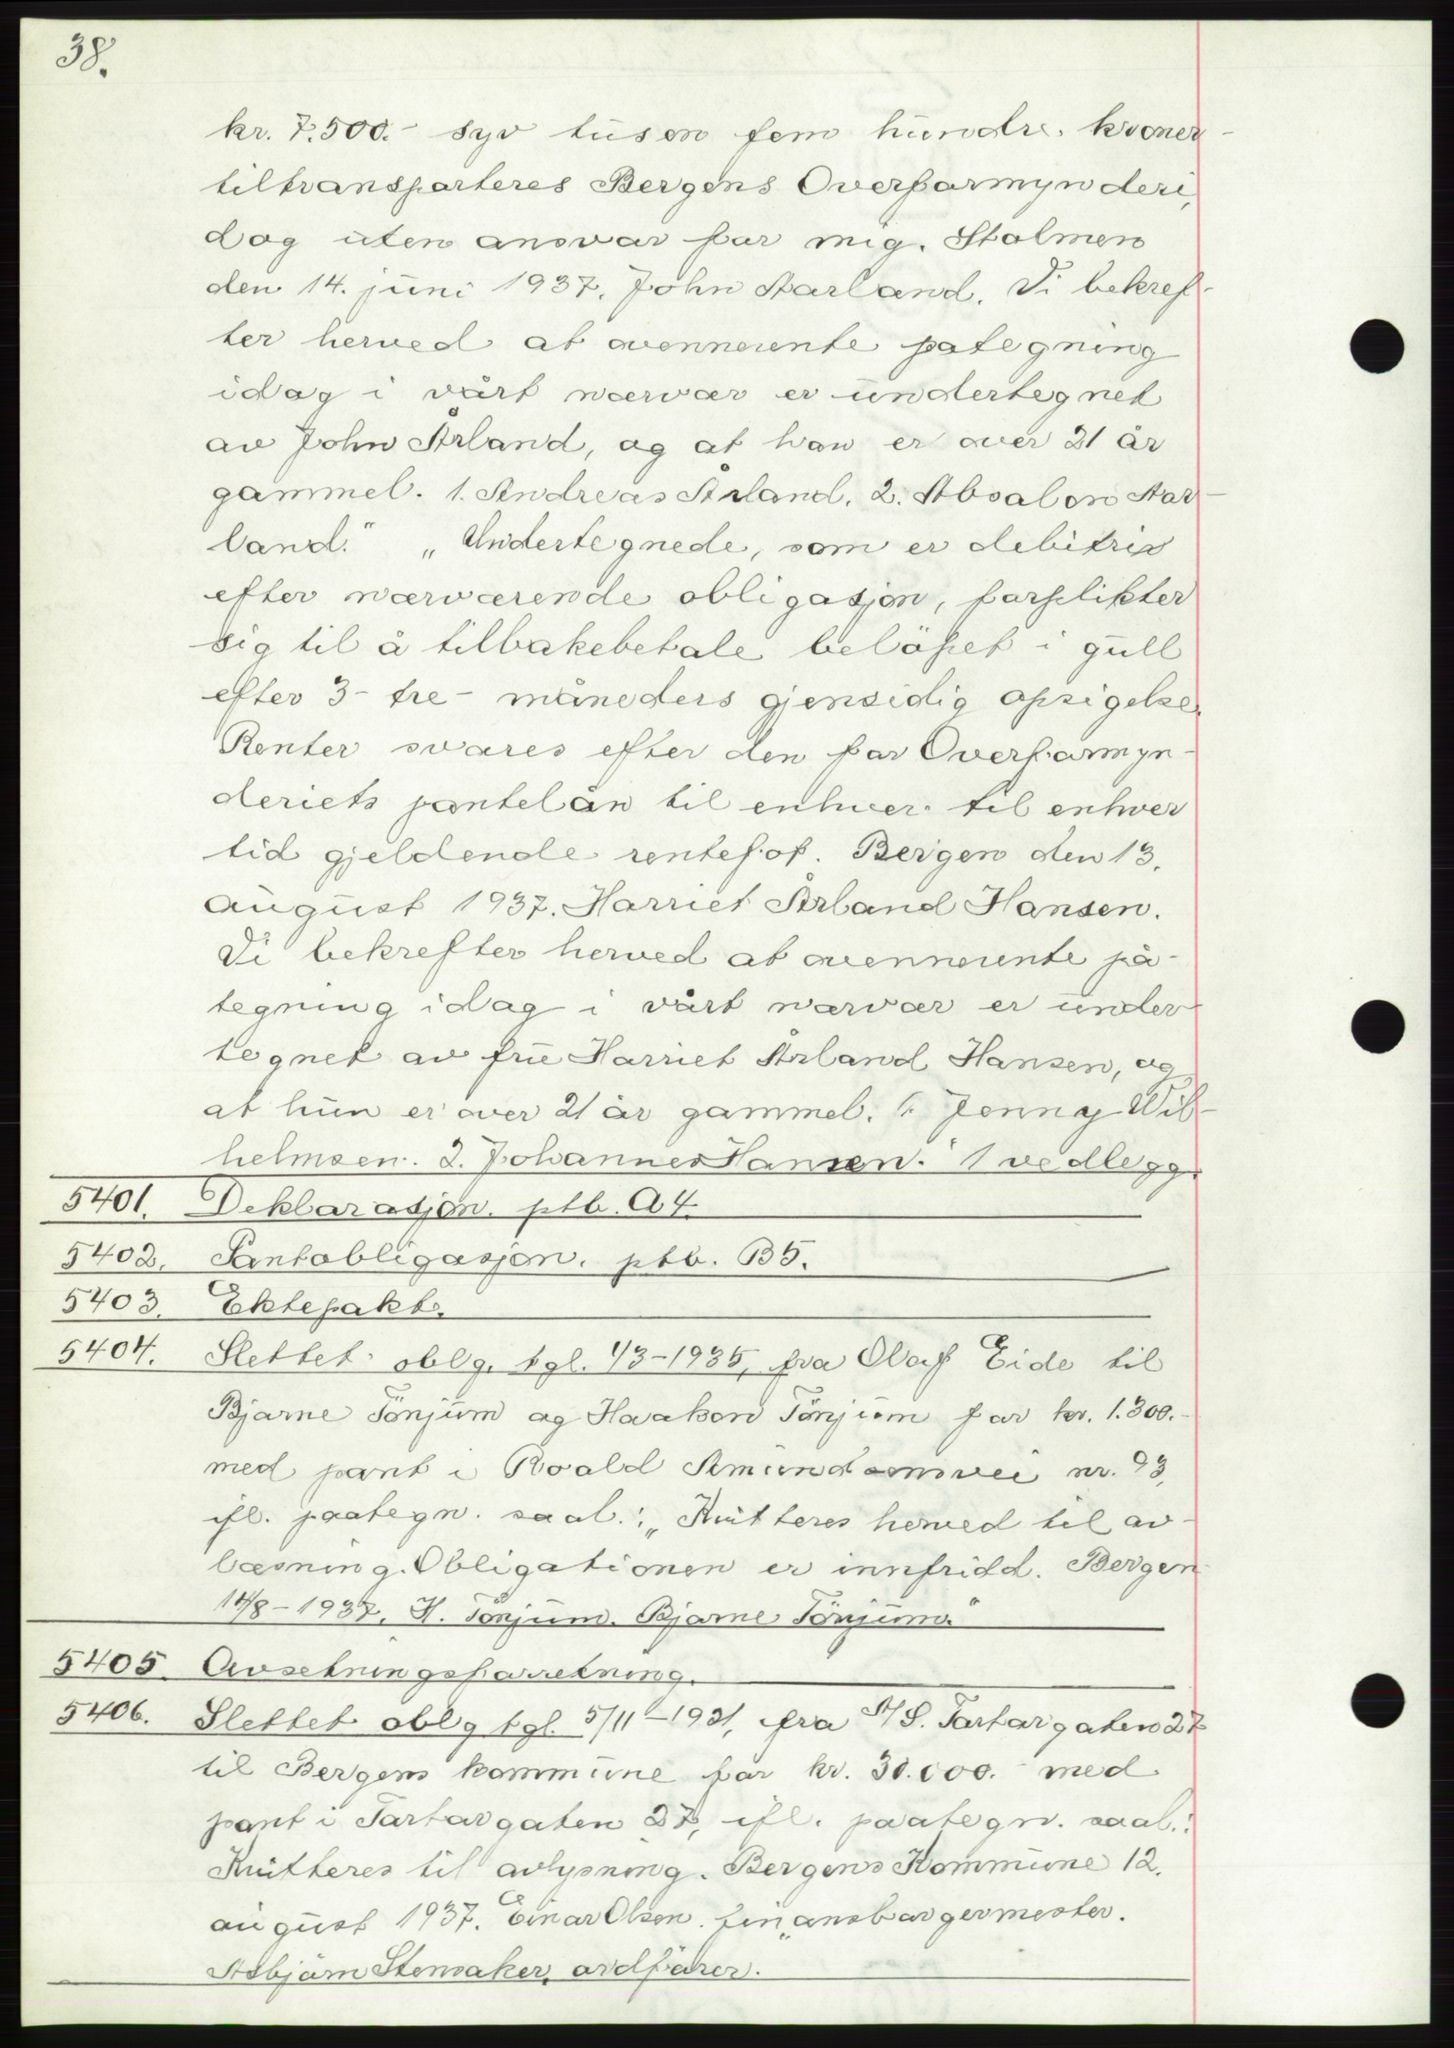 38.
kr. 7.500.- syv tusen fem hundre kroner
tiltransporteres Bergens Overformynderi,
dog uten ansvar for mig. Stolmen
den 14. juni 1937. John Aarland. Vi bekref-
ter herved at ovennevnte pategning
idag i vårt nærvær er undertegnet
av John Årland, og at han er over 21 år
gammel. 1. Andreas Årland. 2. Absalon Aar-
land." „Undertegnede, som er debitrix
efter nærværende obligasjon, forplikter
sig til å tilbakebetale beløpet i gull
efter 3- tre - måneders gjensidig opsigelse.
Renter svares efter den for Overformyn-
deriets pantelån til enhver til enhver
tid gjeldende rentefot. Bergen den 13.
august 1937. Harriet Årland Hansen.
Vi bekrefter herved at ovennevnte på-
tegning idag i vårt nærvær er under-
tegnet av frue Harriet Årland Hansen, og
at hun er over 21 år gammel. 1. Jenny Wil-
helmsen. 2. Johannes Hansen." 1 vedlegg.
5401. Deklarasjon. ptb. A4.
5402. Pantobligasjon. ptb. B5.
5403. Ektepakt.
5404. Slettet oblg. tgl. 1/3-1935, fra Olaf Eide til
Bjarne Tönjum og Haakon Tönjum for kr. 1.300.-
med pant i Roald Amundsensvei nr. 93,
ifl. paategn. saal.: „Kvitteres herved til av-
læsning. Obligationen er innfridd. Bergen
14/8-1937. H. Tönjum. Bjarne Tönjum."
5405. Avsetningsforretning.
5406. Slettet oblg tgl. 5/11-1921, fra A/S. Tartargaten 27
til Bergens kommune for kr. 30.000.- med
pant i Tartargaten 27, ifl. paategn. saal.:
Kvitteres til avlysning. Bergens Kommune 12.
august 1937. Einar Olsen. finansborgermester.
Asbjörn Stensaker, ordförer.